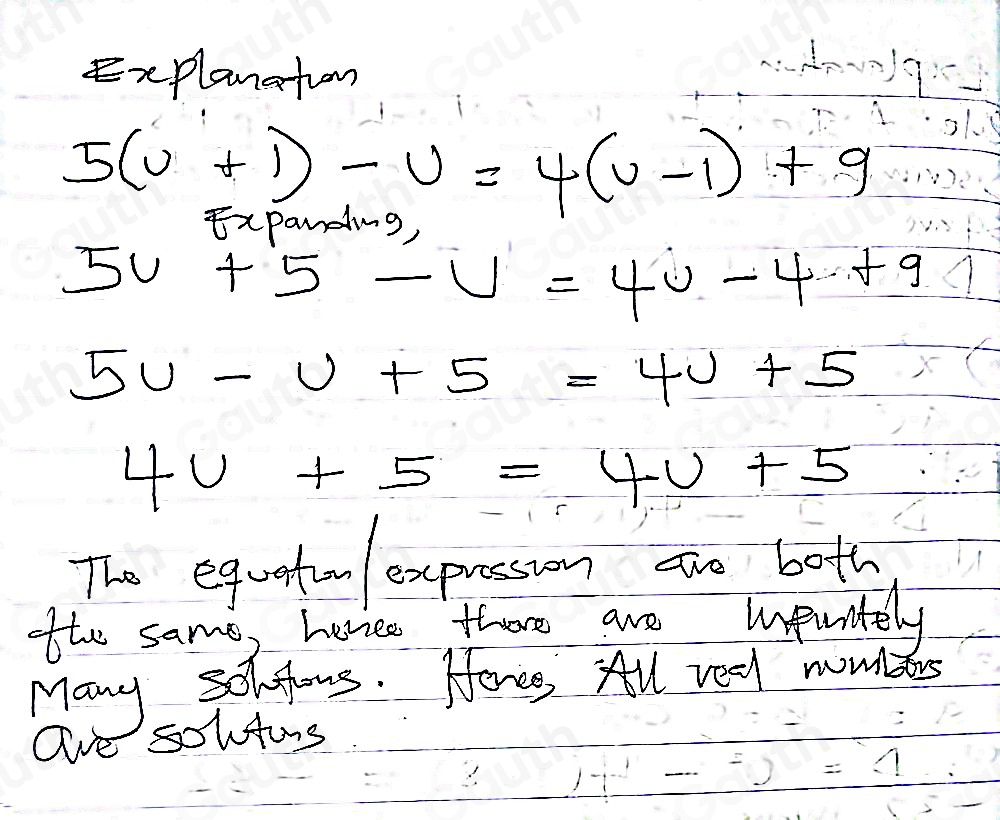 Explanation
5(u + 1) - u = 4(u - 1) + 9
Expanding,
5u + 5 - u = 4u - 4 + 9
5u - u + 5 = 4u + 5
4u + 5 = 4u + 5
The equation/expression are both
the same, hence there are infinitely
Many solutions. Hence, All real numbers
are solutions